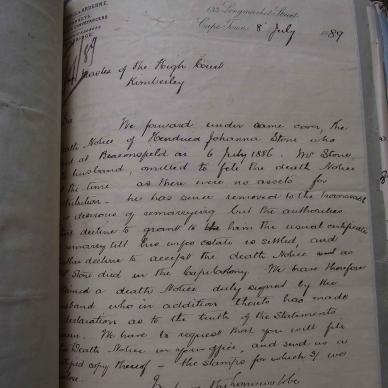 ARDERNE,
132 Longmarket Street
Cape Town 8 July 1889
Master of the High Court
Kimberley
We forward under same cover, the
Death Notice of Hendrica Johanna Stone who
at Beaconsfield on 6 July 1886. Mr Stone
husband, omitted to file the death Notice
the time as there were no assets for
he has since removed to the Transvaal
desirous of remarrying but the authorities
decline to grant to him the usual certificate
remarry till his wifes estate is settled, and
decline to accept the death Notice as
Stone died in the Cape Colony. We have therefore
a death Notice duly signed by the
husband who in addition thereto has made
declaration as to the truth of the statements
We have to request that you will file
Death Notice in your office, and send us a
copy thereof – the stamps for which 2/ we